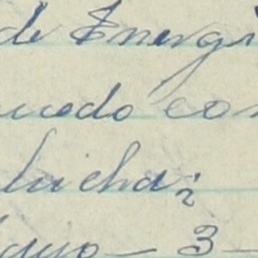 de Energi
uedo con
lucha;
ayo - 3 -